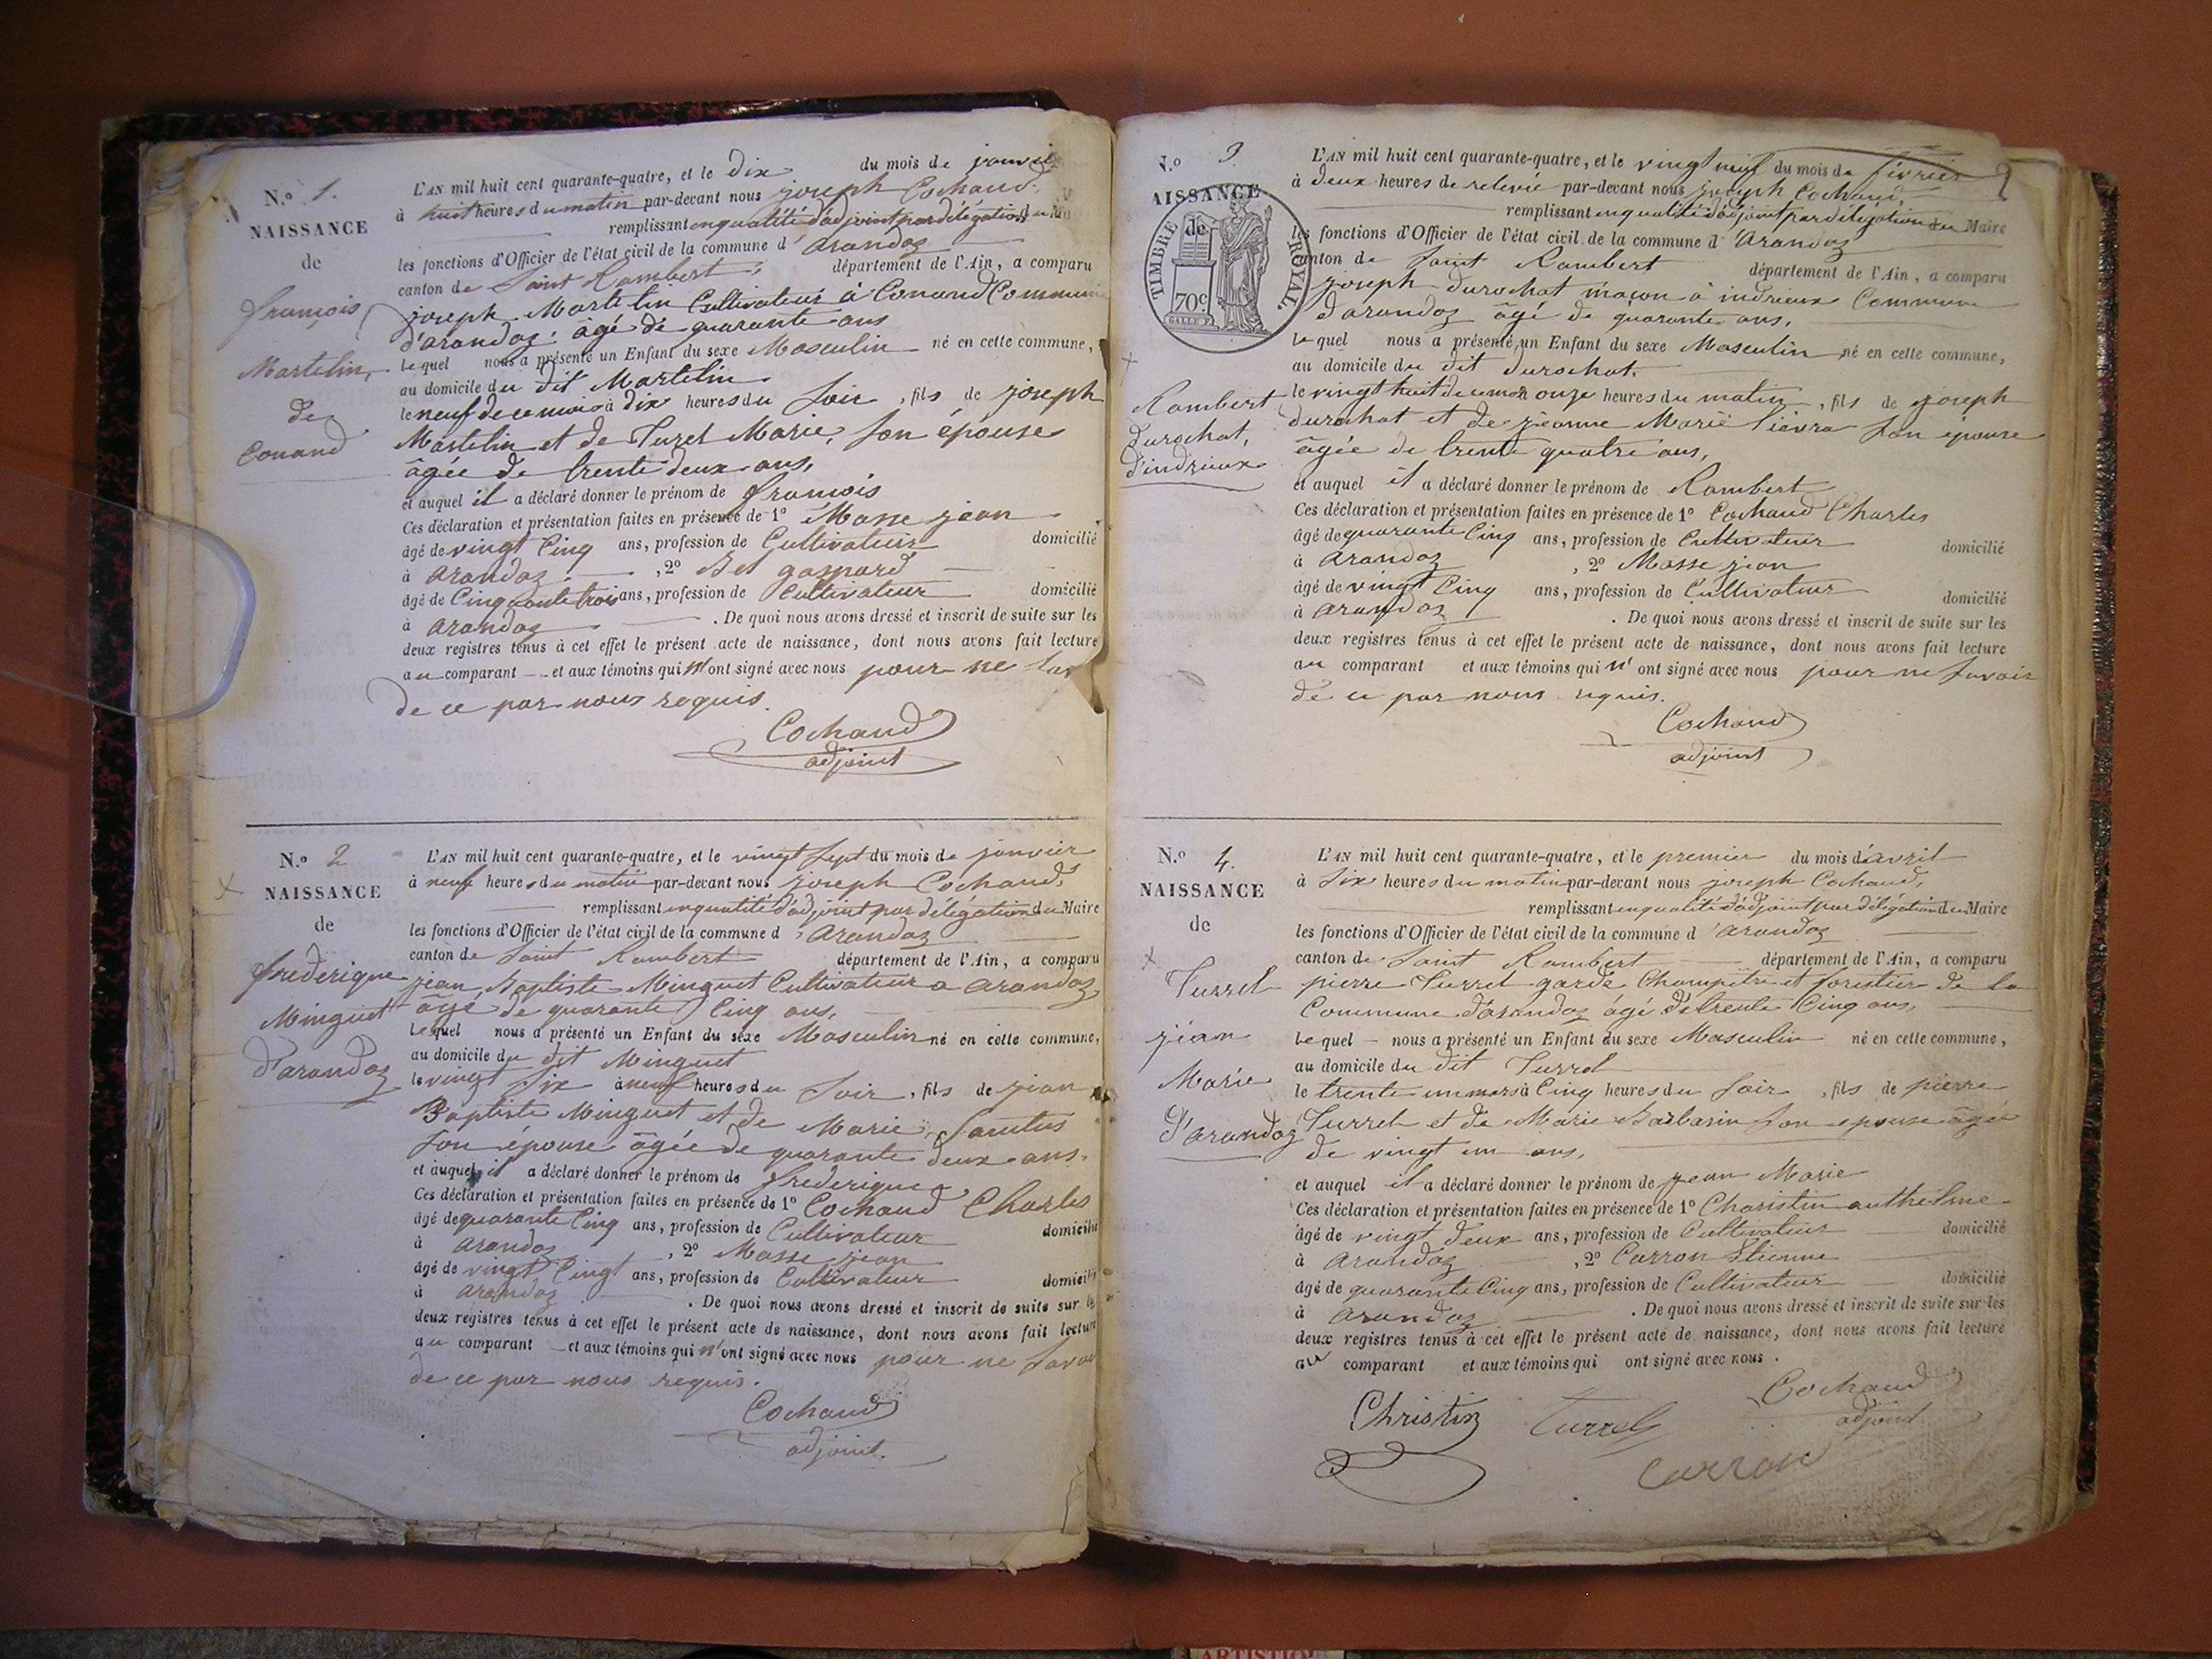 N.o 1.
NAISSANCE
de
françois
Martelin,
de
Conand
L'AN mil huit cent quarante-quatre, et le dix du mois de janvie
à huit heures du matin par-devant nous joseph Cochaud,
remplissant en qualité d'adjoint par délégation du Ma
les fonctions d'Officier de l'état civil de la commune d' arandaz
canton de Saint Rambert, département de l'Ain, a comparu
joseph Martelin Cultivateur à Conand Commune
d'arandaz âgé de quarante ans
Lequel nous a présenté un Enfant du sexe Masculin né en cette commune,
au domicile du dit Martelin
le neuf de ce mois à dix heures du soir, fils de joseph
Martelin et de Turel Marie, son épouse
âgée de trente deux ans,
et auquel il a déclaré donner le prénom de françois
Ces déclaration et présentation faites en présence de 1º Masse jean
âgé de vingt Cinq ans, profession de Cultivateur domicilié
à arandaz, 2º Bel gaspard
âgé de Cinquante trois ans, profession de Cultivateur domicilié
à arandaz. De quoi nous avons dressé et inscrit de suite sur les
deux registres tenus à cet effet le présent acte de naissance, dont nous avons fait lecture
au comparant et aux témoins qui n'ont signé avec nous pour ne sav
de ce par nous requis.
Cochaud
adjoint
N.o 2
NAISSANCE
de
frederique
Minguet
d'arandaz
L'AN mil huit cent quarante-quatre, et le vingt sept du mois de janvier
à neuf heures du matin par-devant nous joseph Cochaud,
remplissant en qualité d'adjoint par délégation du Maire
les fonctions d'Officier de l'état civil de la commune d'arandaz
canton de Saint Rambert département de l'Ain, a comparu
jean Baptiste Minguet Cultivateur a arandaz
âgé de quarante Cinq ans,
Lequel nous a présenté un Enfant du sexe Masculin né en cette commune,
au domicile du dit Minguet
le vingt six à neuf heures du soir, fils de jean
Baptiste Minguet et de Marie
son épouse âgée de quarante deux ans,
et auquel il a déclaré donner le prénom de frederique
Ces déclaration et présentation faites en présence de 1º Cochaud Charles
âgé de quarante Cinq ans, profession de Cultivateur domicilié
à arandaz, 2º Masse jean
âgé de vingt Cinq ans, profession de Cultivateur domicilié
à arandaz. De quoi nous avons dressé et inscrit de suite sur les
deux registres tenus à cet effet le présent acte de naissance, dont nous avons fait lecture
au comparant et aux témoins qui n'ont signé avec nous pour ne savoi
de ce par nous requis.
Cochaud
adjoint.
N.o 3
AISSANCE
de
TIMBRE ROYAL
70c
Rambert
Durochat,
d'indrieux
L'AN mil huit cent quarante-quatre, et le vingt neuf du mois de février
à deux heures de relevée par-devant nous joseph Cochaud,
remplissant en qualité d'adjoint par délégation du Maire
les fonctions d'Officier de l'état civil de la commune d'arandaz
canton de Saint Rambert département de l'Ain, a comparu
joseph durochat maçon à indrieux Commune
d'arandaz âgé de quarante ans,
Lequel nous a présenté un Enfant du sexe Masculin né en cette commune,
au domicile du dit durochat.
le vingt huit de ce mois onze heures du matin, fils de joseph
durochat et de jeanne Marie son épouse
âgée de trente quatre ans,
et auquel il a déclaré donner le prénom de Rambert
Ces déclaration et présentation faites en présence de 1º Cochaud Charles
âgé de quarante Cinq ans, profession de Cultivateur domicilié
à arandaz, 2º Masse jean
âgé de vingt Cinq ans, profession de Cultivateur domicilié
à arandaz. De quoi nous avons dressé et inscrit de suite sur les
deux registres tenus à cet effet le présent acte de naissance, dont nous avons fait lecture
au comparant et aux témoins qui n'ont signé avec nous pour ne savoir
de ce par nous requis.
Cochaud
adjoint
N.o 4.
NAISSANCE
de
Turrel
jean
Marie
d'arandaz
L'AN mil huit cent quarante-quatre, et le premier du mois d'avril
à six heures du matin par-devant nous joseph Cochaud,
remplissant en qualité d'adjoint par délégation du Maire
les fonctions d'Officier de l'état civil de la commune d'arandaz
canton de Saint Rambert département de l'Ain, a comparu
pierre Turrel garde Champêtre et forestier de la
Commune d'arandaz âgé de trente Cinq ans,
Lequel nous a présenté un Enfant du sexe Masculin né en cette commune,
au domicile du dit Turrel
le trente un mars à Cinq heures du soir, fils de pierre
Turrel et de Marie Barbarin son epouse âgée
de vingt un ans,
et auquel il a déclaré donner le prénom de jean Marie
Ces déclaration et présentation faites en présence de 1º Charistin anthelme
âgé de vingt deux ans, profession de Cultivateur domicilié
à arandaz, 2º Carron Etienne
âgé de quarante Cinq ans, profession de Cultivateur domicilié
à arandaz. De quoi nous avons dressé et inscrit de suite sur les
deux registres tenus à cet effet le présent acte de naissance, dont nous avons fait lecture
au comparant et aux témoins qui ont signé avec nous.
Cochaud
adjoint
Christin Turrel
Carron
ARTISTIQUE